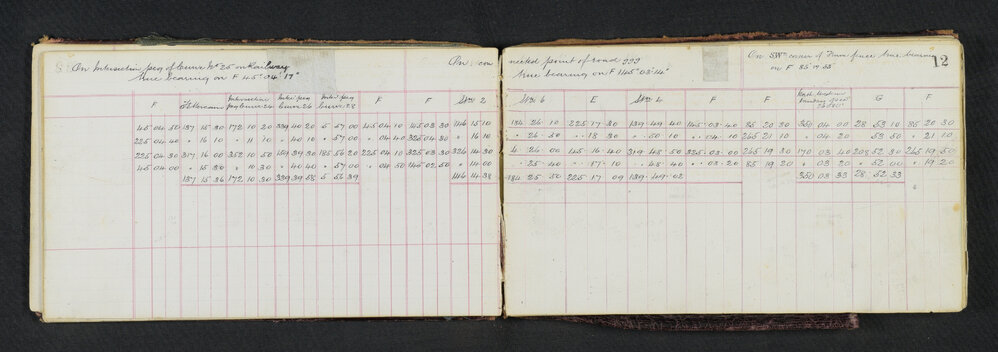 On Intersection peg of Curve No 25 on Railway
true bearing on F 45° 04' 17"
On connected point of road 999
true bearing on F 145° 03' 14"
On SWn corner of fence true bearing
on F 85 19 55
12
F Intersection peg curve 24 Inter. peg curve 26 Inter. peg curve 28 F F Stn 2
Stn 6 E Stn 4 F F G F
45 04 50 187 15 30 172 10 20 339 40 20 5 57 00 45 04 10 145 03 30 146 15 10
184 26 00 225 17 30 139 49 40 145 03 40 85 20 30 350 04 00 28 53 10 85 20 30
225 04 40 " 16 10 " 11 10 " 40 10 " 57 00 " 04 40 325 04 30 " 16 10
" 26 50 " 18 30 " 50 10 " 14 10 265 21 10 " 04 20 " 53 50 " 21 10
225 04 30 317 16 00 352 10 50 159 39 30 185 56 20 225 04 10 325 03 30 326 14 30
4 26 00 145 16 40 319 48 50 325 03 00 265 19 30 170 03 40 208 52 30 265 19 50
45 04 00 " 15 20 " 10 30 " 40 40 " 57 00 " 04 50 145 02 50 " 14 00
" 25 40 " 17 10 " 48 40 " 03 20 85 19 20 " 03 20 " 52 00 " 19 20
137 15 36 172 10 30 339 39 58 5 56 39 146 14 38
184 25 50 225 17 09 139 49 02 350 03 33 28 52 33